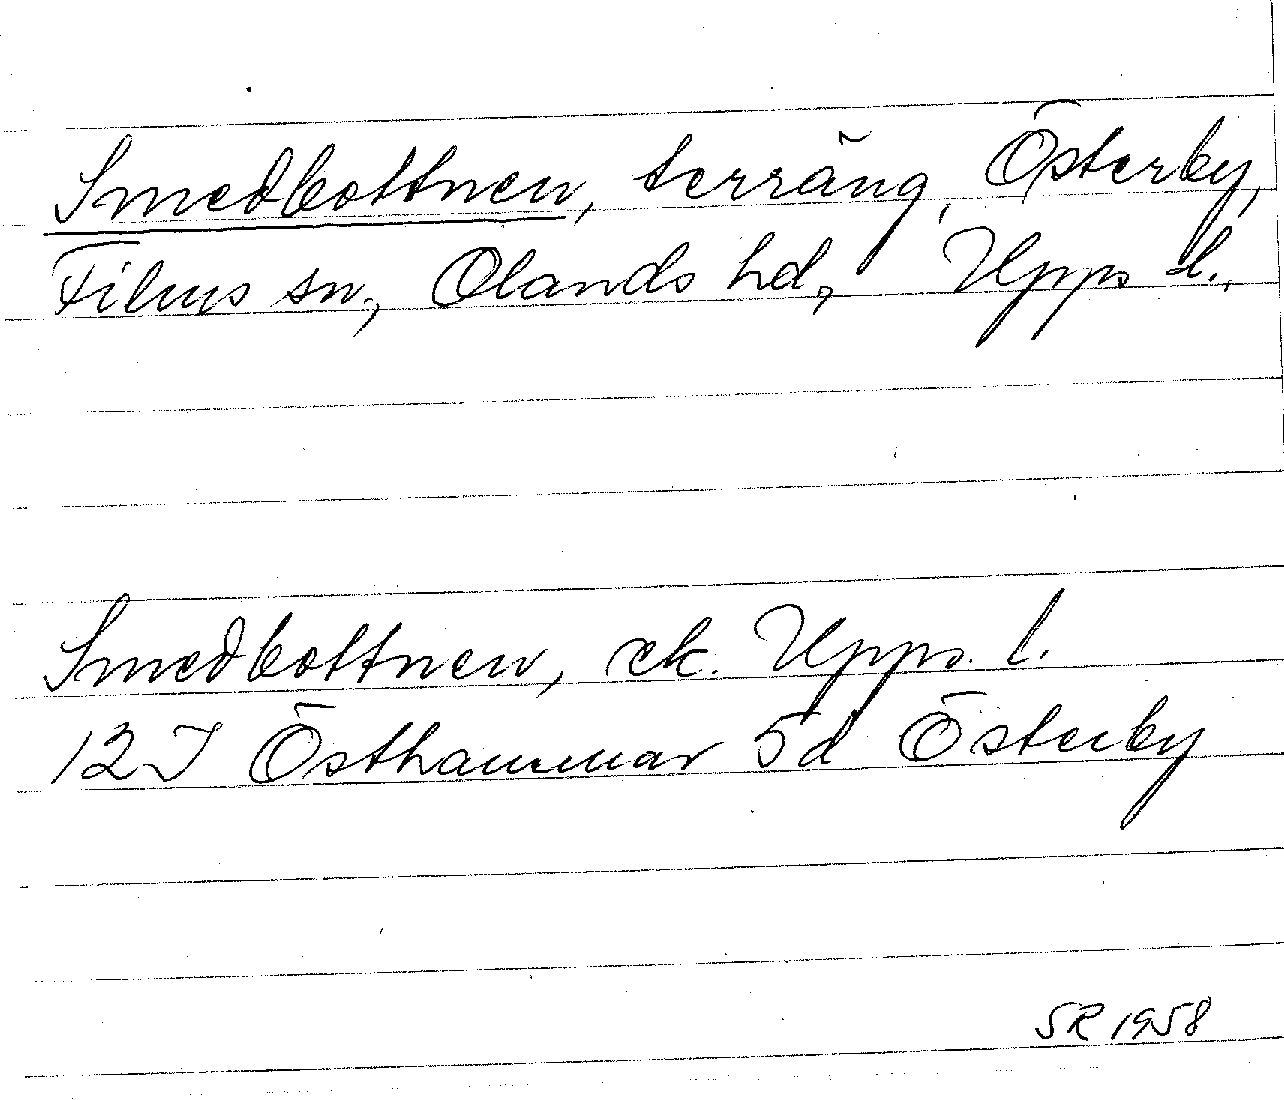 Smedbottnen, terräng, Österby,
Films sn, Olands hd, Upps. l.,
Smedbottnen, ek. Upps. l.
12I Östhammar 5d Österby
SR 1958